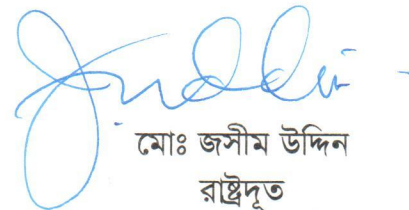 মোঃ জসীম উদ্দিন
রাষ্ট্রদূত